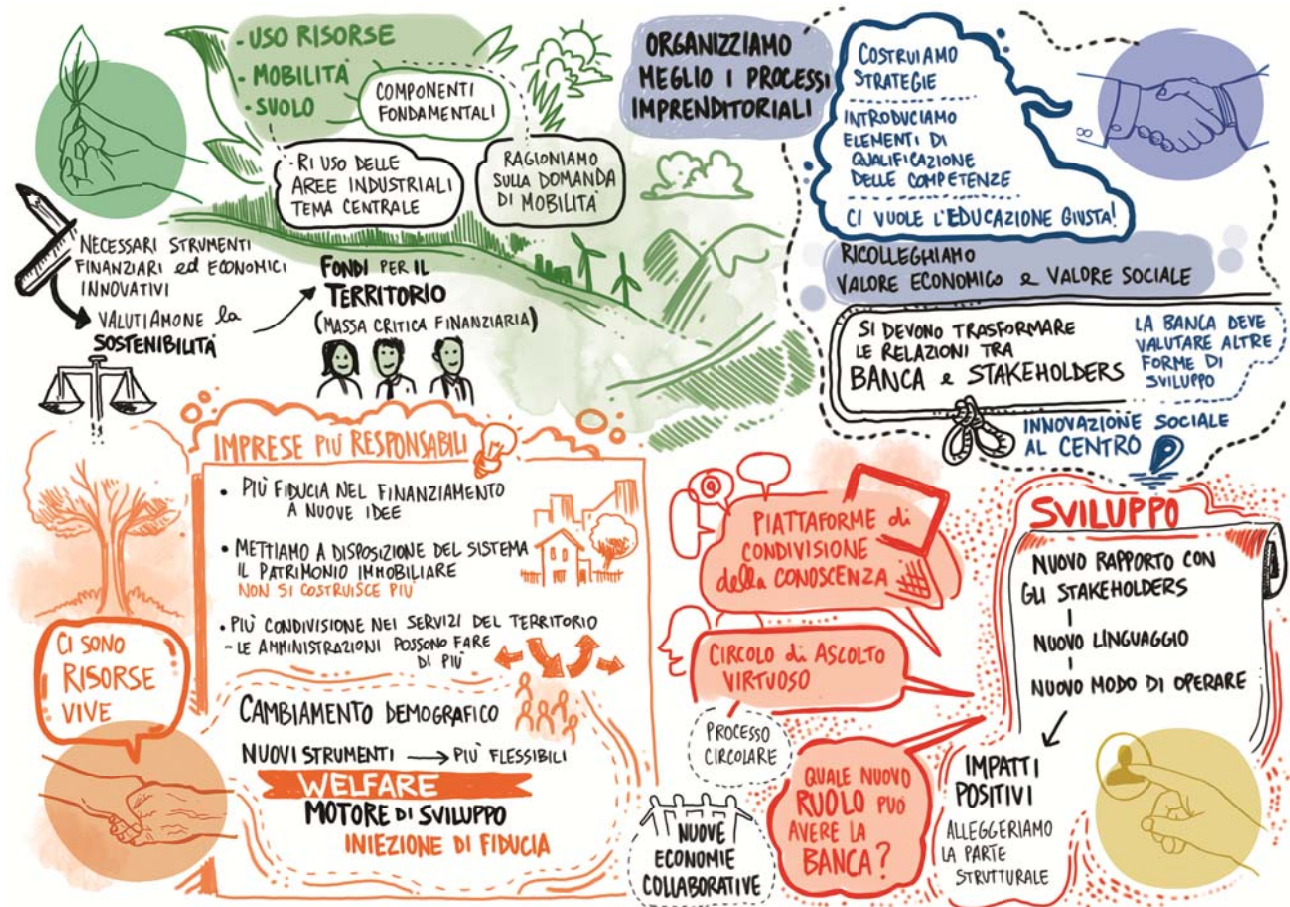 - USO RISORSE
- MOBILITÀ
- SUOLO
COMPONENTI
FONDAMENTALI
RI USO DELLE
AREE INDUSTRIALI
TEMA CENTRALE
RAGIONIAMO
SULLA DOMANDA
DI MOBILITÀ
NECESSARI STRUMENTI
FINANZIARI ed ECONOMICI
INNOVATIVI
VALUTIAMONE la
SOSTENIBILITÀ
FONDI PER IL
TERRITORIO
(MASSA CRITICA FINANZIARIA)
ORGANIZZIAMO
MEGLIO I PROCESSI
IMPRENDITORIALI
COSTRUIAMO
STRATEGIE
INTRODUCIAMO
ELEMENTI DI
QUALIFICAZIONE
DELLE COMPETENZE
CI VUOLE L'EDUCAZIONE GIUSTA!
RICOLLEGHIAMO
VALORE ECONOMICO e VALORE SOCIALE
SI DEVONO TRASFORMARE
LE RELAZIONI TRA
BANCA e STAKEHOLDERS
LA BANCA DEVE
VALUTARE ALTRE
FORME DI
SVILUPPO
INNOVAZIONE SOCIALE
AL CENTRO
CI SONO
RISORSE
VIVE
IMPRESE PIÙ RESPONSABILI
• PIÙ FIDUCIA NEL FINANZIAMENTO
A NUOVE IDEE
• METTIAMO A DISPOSIZIONE DEL SISTEMA
IL PATRIMONIO IMMOBILIARE
NON SI COSTRUISCE PIÙ
• PIÙ CONDIVISIONE NEI SERVIZI DEL TERRITORIO
- LE AMMINISTRAZIONI POSSONO FARE
DI PIÙ
CAMBIAMENTO DEMOGRAFICO
NUOVI STRUMENTI → PIÙ FLESSIBILI
WELFARE
MOTORE DI SVILUPPO
INIEZIONE DI FIDUCIA
@
PIATTAFORME di
CONDIVISIONE
della CONOSCENZA
CIRCOLO di ASCOLTO
VIRTUOSO
PROCESSO
CIRCOLARE
NUOVE
ECONOMIE
COLLABORATIVE
QUALE NUOVO
RUOLO PUÓ
AVERE LA
BANCA?
SVILUPPO
NUOVO RAPPORTO CON
GLI STAKEHOLDERS
NUOVO LINGUAGGIO
NUOVO MODO DI OPERARE
IMPATTI
POSITIVI
ALLEGGERIAMO
LA PARTE
STRUTTURALE